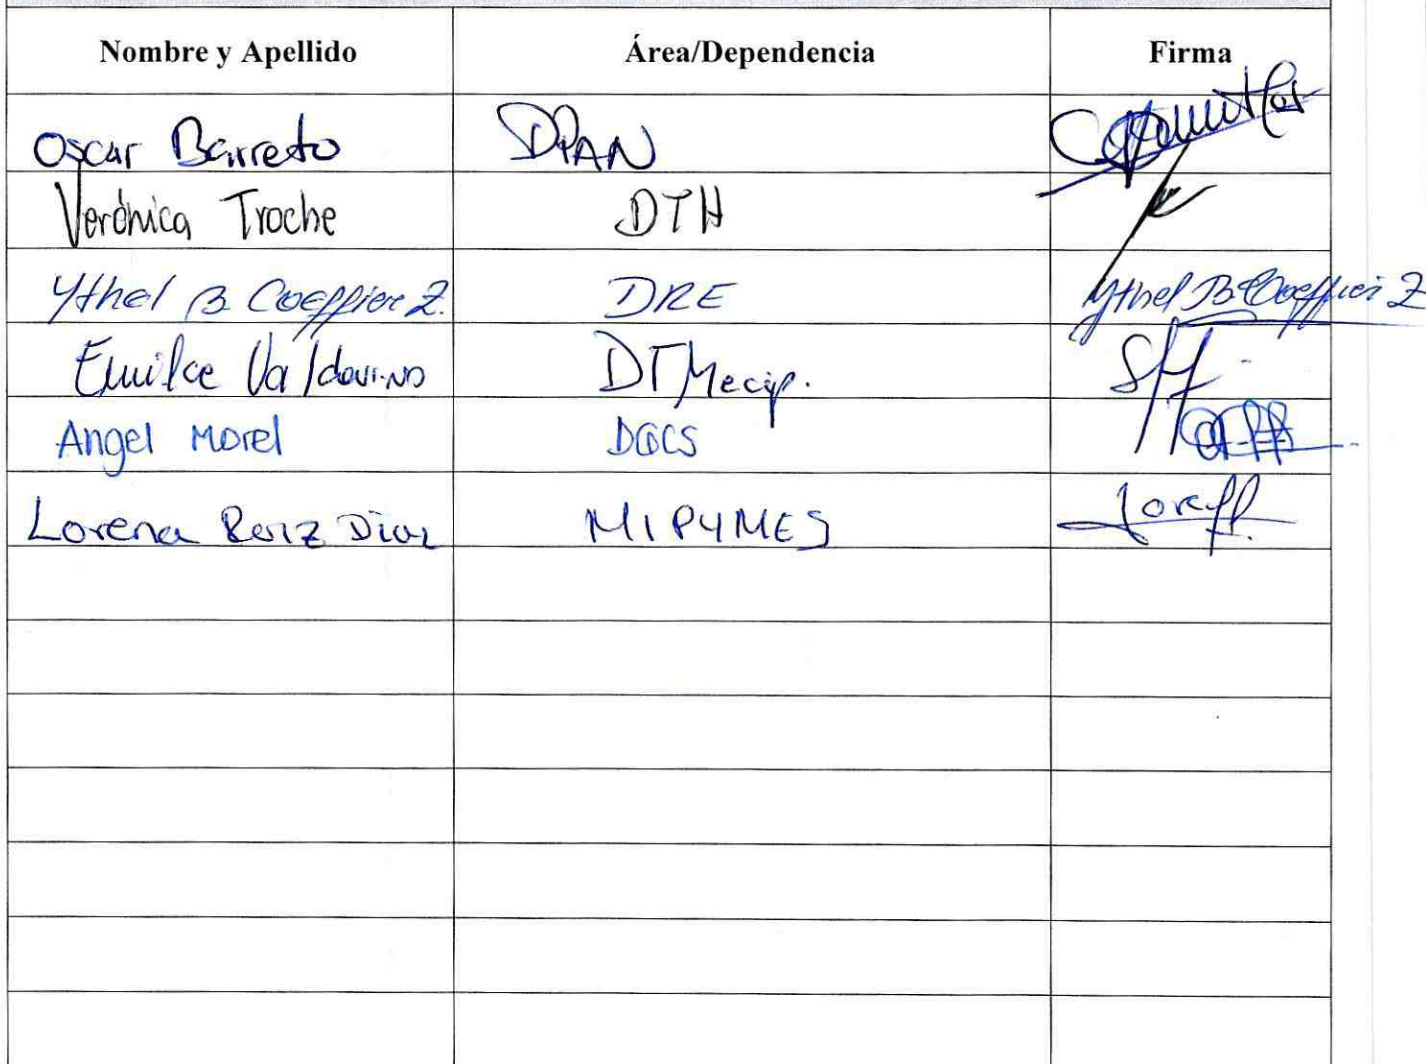 Nombre y Apellido Área/Dependencia Firma
Oscar Barreto DPAN
Verónica Troche DTH
Ythel B Coeffier Z. DRE Ythel B Coeffier Z
Emilce Valdovino DTMecip.
Angel Morel DGCS
Lorena Ruiz Diaz MIPYMES